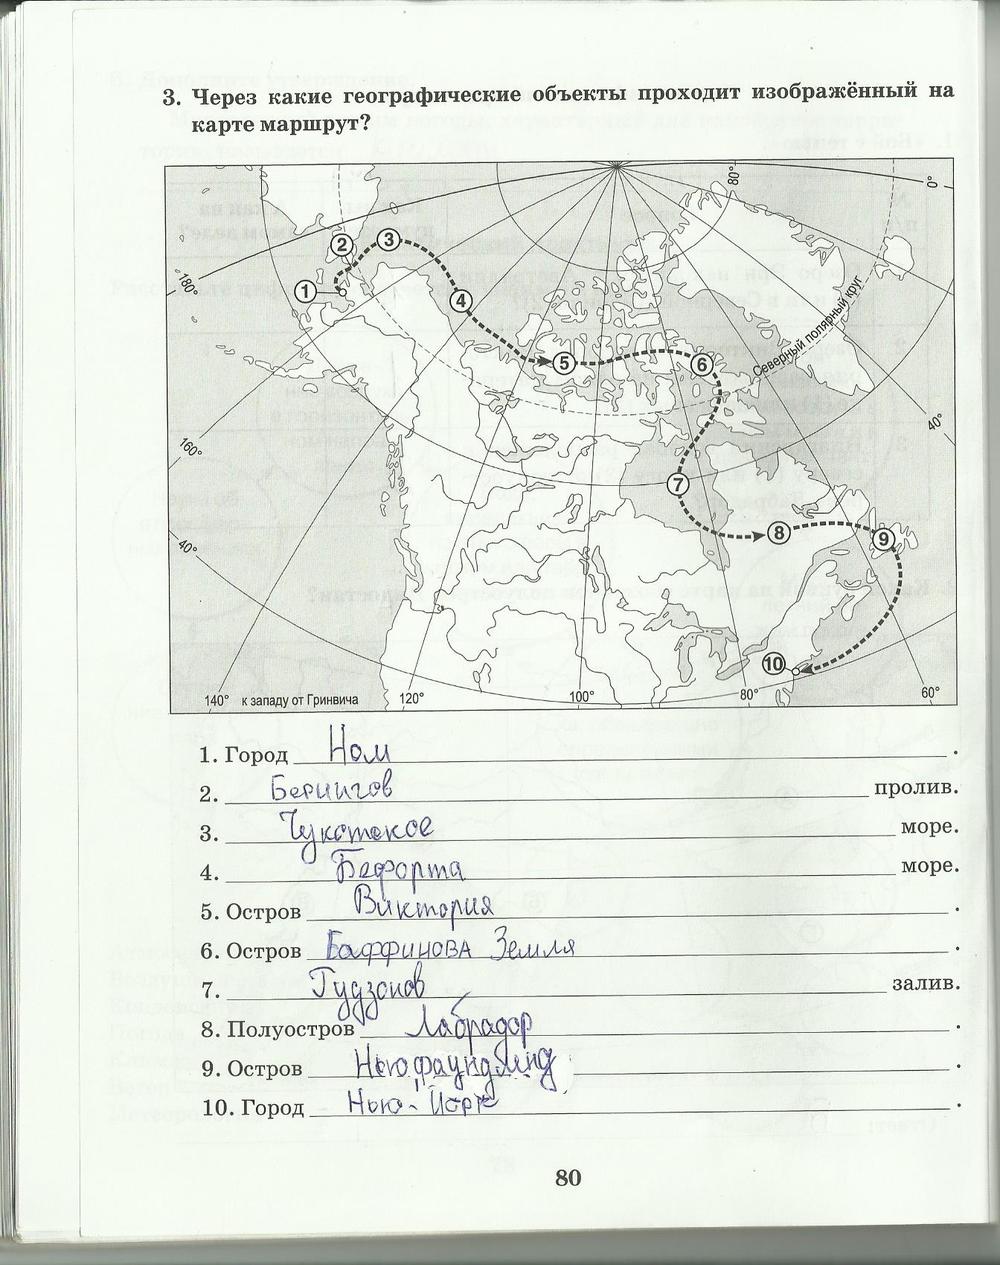 3. Через какие географические объекты проходит изображённый на
карте маршрут?
80°
0°
2
3
180°
1
4
Северный полярный круг
5
6
40°
160°
7
8
9
40°
10
140° к западу от Гринвича 120° 100° 80° 60°
1. Город Ном.
2. Берингов пролив.
3. Чукотское море.
4. Бофорта море.
5. Остров Виктория.
6. Остров Баффинова Земля.
7. Гудзонов залив.
8. Полуостров Лабрадор.
9. Остров Ньюфаундленд.
10. Город Нью-Йорк.
80